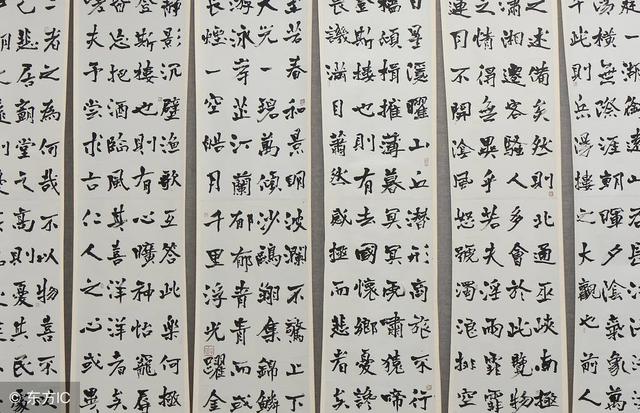 湯橫無際涯朝暉夕陰氣象萬
千此則岳陽樓之大觀也前人
之述備矣然則北通巫峽南極
瀟湘遷客騷人多會於此覽物
之情得無異乎若夫淫雨霏霏
連月不開陰風怒號濁浪排空
星隱曜山丘潛形商旅不行
檣傾楫摧薄暮冥冥虎嘯猿啼
登斯樓也則有去國懷鄉憂讒
畏譏滿目蕭然感極而悲者矣
至若春和景明波瀾不驚上下
天光一碧萬頃沙鷗翔集錦鱗
游泳岸芷汀蘭郁郁青青而或
長煙一空皓月千里浮光躍金
靜影沉璧漁歌互答此樂何極
登斯樓也則有心曠神怡寵辱
皆忘把酒臨風其喜洋洋者矣
嗟夫予嘗求古仁人之心或異
二者之為何哉不以物喜不以
己悲居廟堂之高則憂其民
東方IC